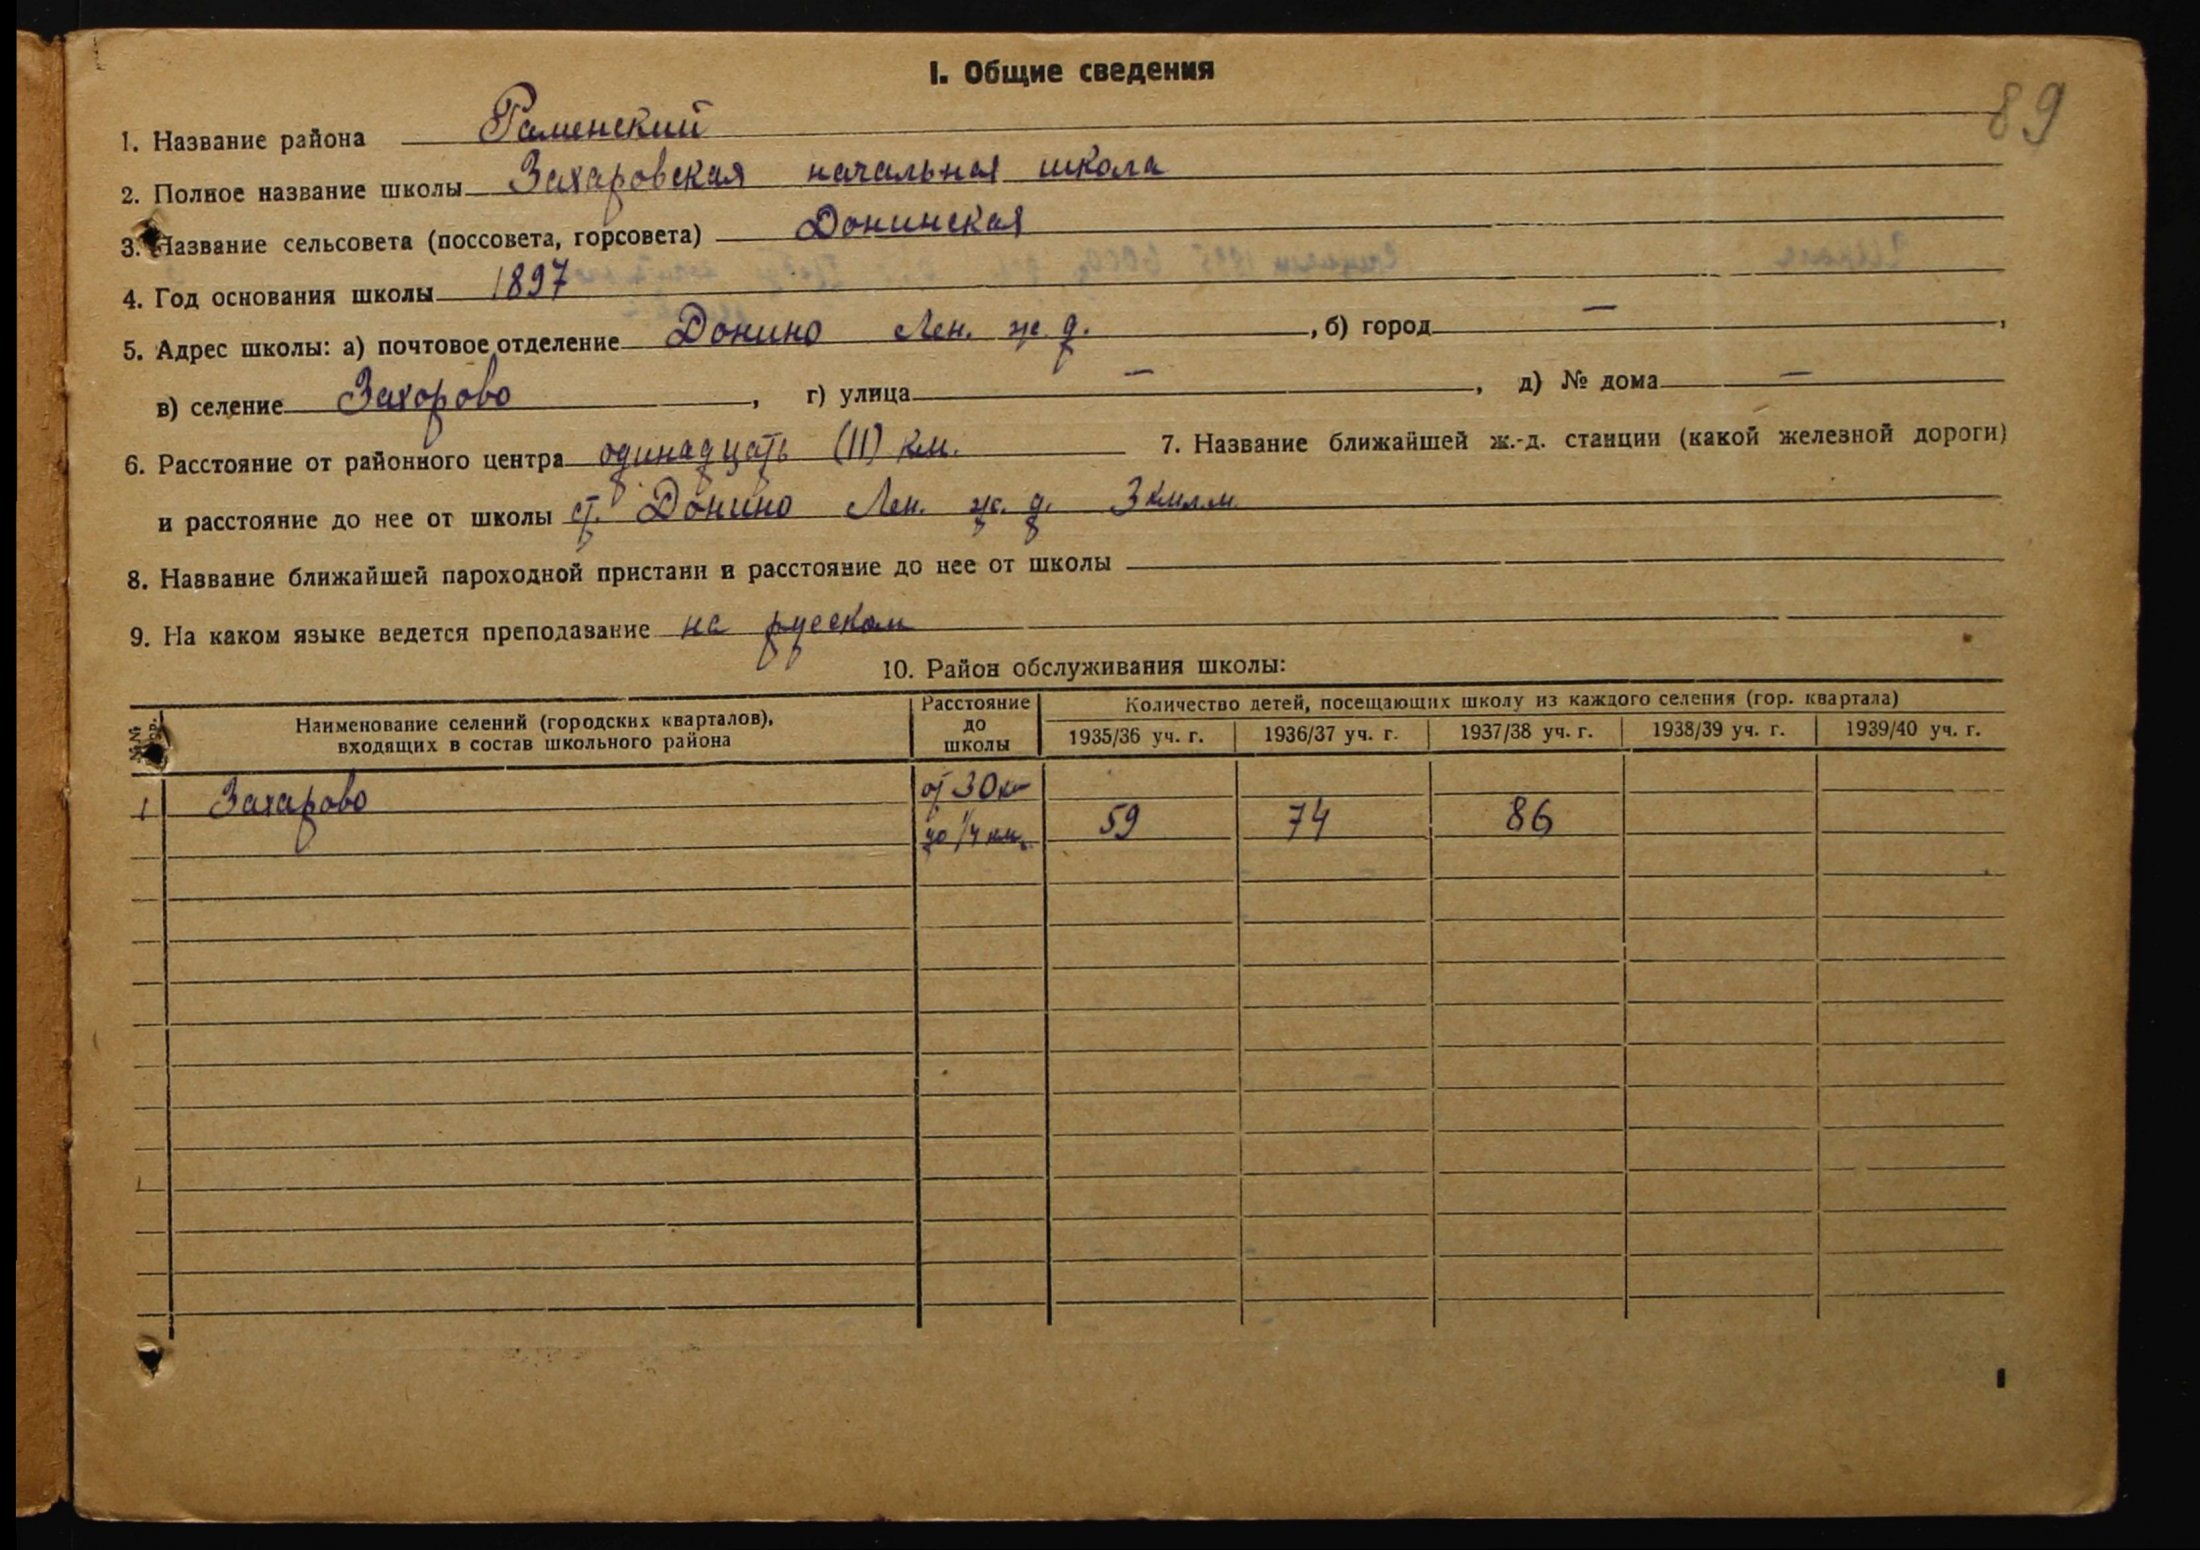 I. Общие сведения
89
1. Название района Раменский
2. Полное название школы Захаровская начальная школа
3. Название сельсовета (поссовета, горсовета) Донинская
4. Год основания школы 1897
5. Адрес школы: а) почтовое отделение Донино Лен. ж. д. , б) город — ,
в) селение Захорово , г) улица — , д) № дома —
6. Расстояние от районного центра одинадцать (11) км. 7. Название ближайшей ж.-д. станции (какой железной дороги)
и расстояние до нее от школы ст. Донино Лен. ж. д. 3 килм.
8. Название ближайшей пароходной пристани и расстояние до нее от школы
9. На каком языке ведется преподавание на русском
10. Район обслуживания школы:
№№ Наименование селений (городских кварталов), входящих в состав школьного района Расстояние до школы Количество детей, посещающих школу из каждого селения (гор. квартала)
1935/36 уч. г. 1936/37 уч. г. 1937/38 уч. г. 1938/39 уч. г. 1939/40 уч. г.
1 Захарово от 30
до 1/4 км. 59 74 86
1